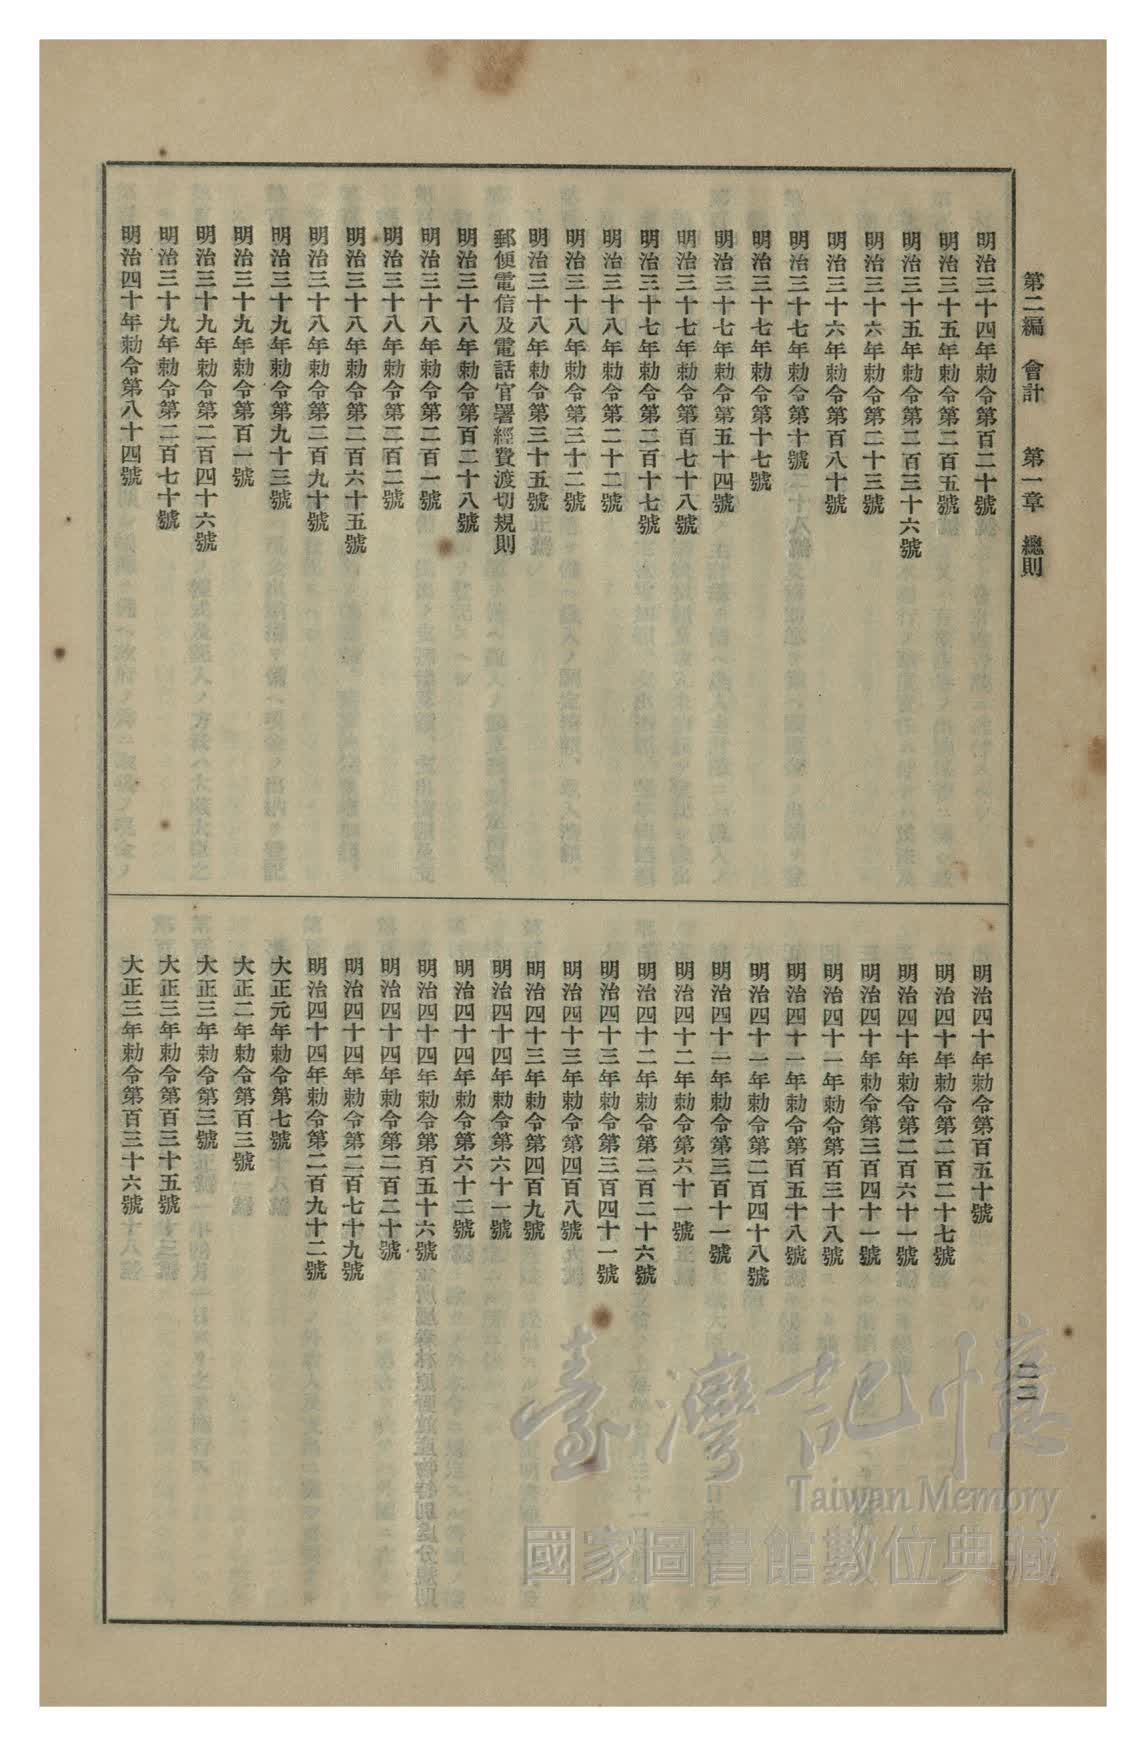 第二編　會計　　第一章　總則
二二
明治三十四年勅令第百二十號
明治三十五年勅令第二百五號
明治三十五年勅令第二百三十六號
明治三十六年勅令第二十三號
明治三十六年勅令第百八十號
明治三十七年勅令第十號
明治三十七年勅令第十七號
明治三十七年勅令第五十四號
明治三十七年勅令第百七十八號
明治三十七年勅令第二百十七號
明治三十八年勅令第二十二號
明治三十八年勅令第三十二號
明治三十八年勅令第三十五號
郵便電信及電話官署經費渡切規則
明治三十八年勅令第百二十八號
明治三十八年勅令第二百一號
明治三十八年勅令第二百二號
明治三十八年勅令第二百六十五號
明治三十八年勅令第二百九十號
明治三十九年勅令第九十三號
明治三十九年勅令第百一號
明治三十九年勅令第二百四十六號
明治三十九年勅令第二百七十號
明治四十年勅令第八十四號
明治四十年勅令第百五十號
明治四十年勅令第二百二十七號
明治四十年勅令第二百六十一號
明治四十年勅令第三百四十一號
明治四十一年勅令第百三十八號
明治四十一年勅令第百五十八號
明治四十一年勅令第二百四十八號
明治四十一年勅令第三百十一號
明治四十二年勅令第六十一號
明治四十二年勅令第二百二十六號
明治四十三年勅令第三百四十一號
明治四十三年勅令第四百八號
明治四十三年勅令第四百九號
明治四十四年勅令第六十一號
明治四十四年勅令第六十二號
明治四十四年勅令第百五十六號
明治四十四年勅令第二百二十號
明治四十四年勅令第二百七十九號
明治四十四年勅令第二百九十二號
大正元年勅令第七號
大正二年勅令第百三號
大正三年勅令第三號
大正三年勅令第百三十五號
大正三年勅令第百三十六號
臺灣記憶
Taiwan Memory
國家圖書館數位典藏